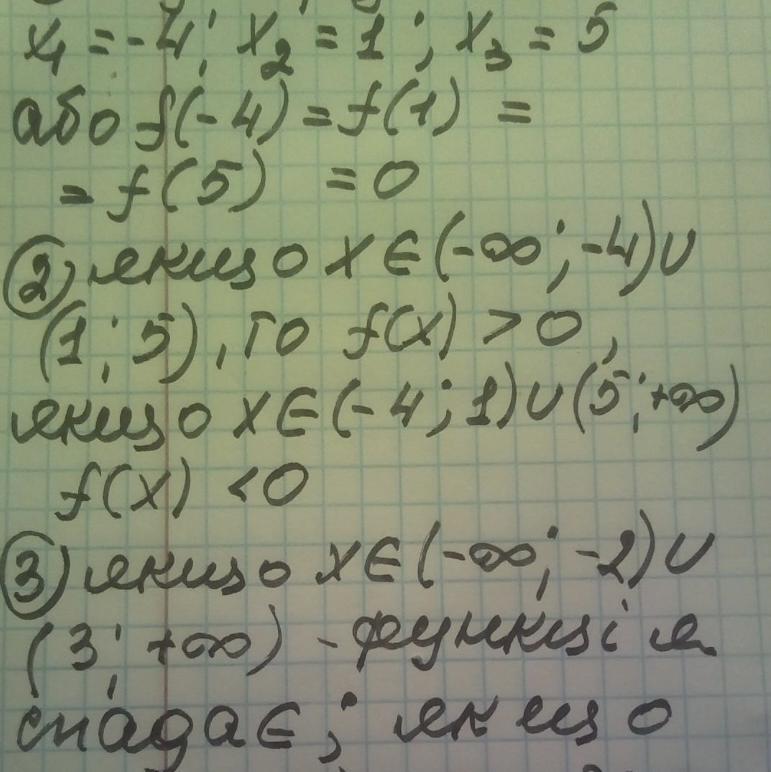 x₁ = -4; x₂ = 1; x₃ = 5
або f(-4) = f(1) =
= f(5) = 0
2) якщо x ∈ (-∞; -4) ∪
(1; 5), то f(x) > 0,
якщо x ∈ (-4; 1) ∪ (5; +∞)
f(x) < 0
3) якщо x ∈ (-∞; -2) ∪
(3; +∞) - функція
спадає; якщо